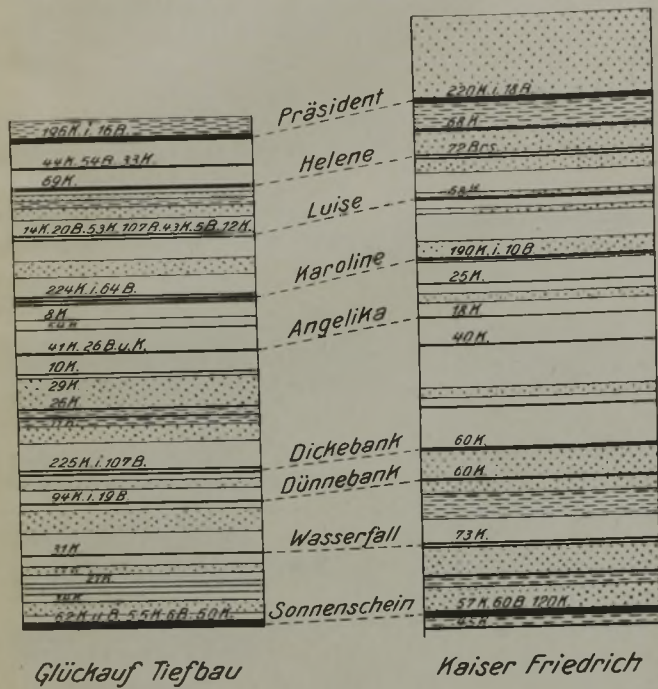 196K.i.16B.
44K.54B.33K.
69K.
14K.20B.53K.107B.43K.5B.12K.
224K.i.64B.
8K
41K.26B.u.K.
10K.
29K
26K
225K.i.107B.
94K.i.19B.
31K
27K
62K.u.B.55K.6B.50K.
Glückauf Tiefbau
Präsident
Helene
Luise
Karoline
Angelika
Dickebank
Dünnebank
Wasserfall
Sonnenschein
220K.i.18B.
68K.
72Brs.
68K
190K.i.10B
25K
18K
40K.
60K.
60K.
73K.
57K.60B.120K.
45K
Kaiser Friedrich